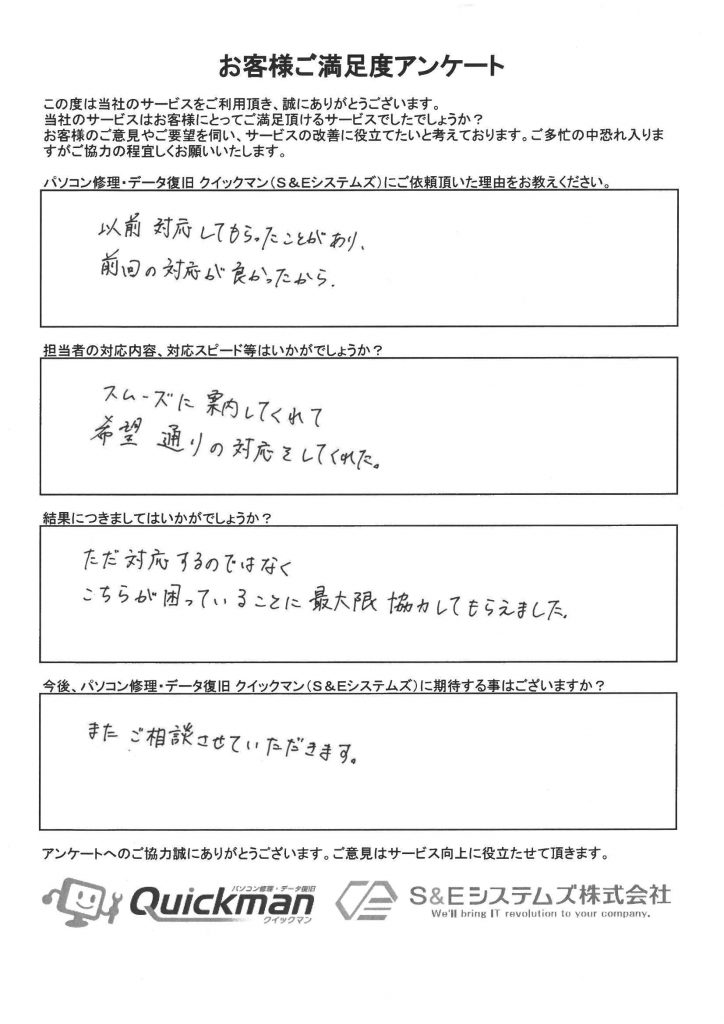 お客様ご満足度アンケート
この度は当社のサービスをご利用頂き、誠にありがとうございます。
当社のサービスはお客様にとってご満足頂けるサービスでしたでしょうか？
お客様のご意見やご要望を伺い、サービスの改善に役立てたいと考えております。ご多忙の中恐れ入りま
すがご協力の程宜しくお願いいたします。
パソコン修理・データ復旧 クイックマン（Ｓ＆Ｅシステムズ）にご依頼頂いた理由をお教えください。
以前 対応してもらったことがあり、
前回の対応が良かったから.
担当者の対応内容、対応スピード等はいかがでしょうか？
スムーズに案内してくれて
希望 通りの対応をしてくれた。
結果につきましてはいかがでしょうか？
ただ対応するのではなく
こちらが困っていることに最大限 協力してもらえました.
今後、パソコン修理・データ復旧 クイックマン（Ｓ＆Ｅシステムズ）に期待する事はございますか？
また ご相談させていただきます。
アンケートへのご協力誠にありがとうございます。ご意見はサービス向上に役立たせて頂きます。
パソコン修理・データ復旧
Quickman
クイックマン
S&Eシステムズ株式会社
We'll bring IT revolution to your company.